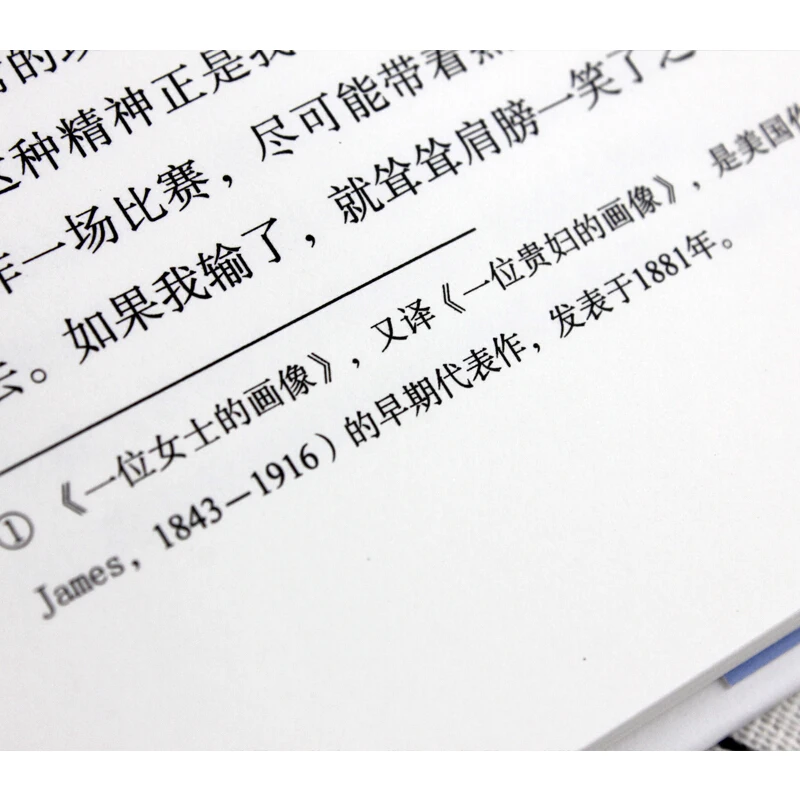 这种精神正是我
一场比赛，尽可能带着
去。如果我输了，就耸耸肩膀一笑了之
① 《一位女士的画像》，又译《一位贵妇的画像》，是美国作
James，1843—1916）的早期代表作，发表于1881年。